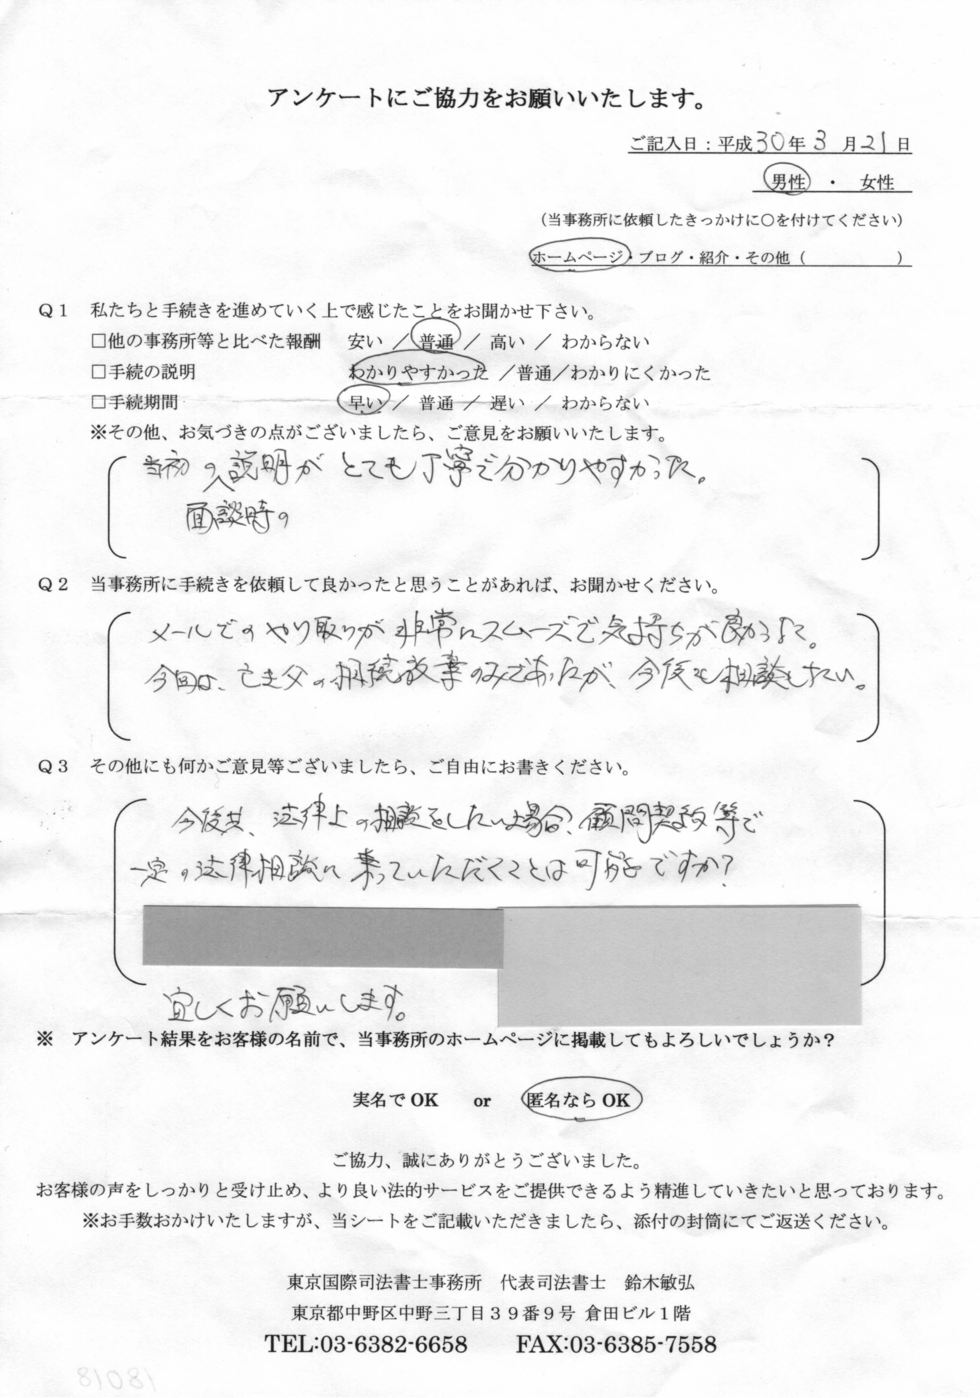 アンケートにご協力をお願いいたします。
ご記入日：平成30年3月21日
男性 ・ 女性
（当事務所に依頼したきっかけに○を付けてください）
ホームページ・ブログ・紹介・その他（　　　　　　）
Q１　私たちと手続きを進めていく上で感じたことをお聞かせ下さい。
□他の事務所等と比べた報酬　安い ／ 普通 ／ 高い ／ わからない
□手続の説明　わかりやすかった ／普通／わかりにくかった
□手続期間　早い ／ 普通 ／ 遅い ／ わからない
※その他、お気づきの点がございましたら、ご意見をお願いいたします。
当初の説明がとても丁寧で分かりやすかった。
面談時の
Q２　当事務所に手続きを依頼して良かったと思うことがあれば、お聞かせください。
メールでのやり取りが非常にスムーズで気持ちが良かった。
今回は、亡き父の相続放棄のみであったが、今後も相談をしたい。
Q３　その他にも何かご意見等ございましたら、ご自由にお書きください。
今後共、法律上の相談をしたい場合、顧問契約等で
一定の法律相談に乗っていただくことは可能ですか？
宜しくお願いします。
※　アンケート結果をお客様の名前で、当事務所のホームページに掲載してもよろしいでしょうか？
実名でOK　or　匿名ならOK
ご協力、誠にありがとうございました。
お客様の声をしっかりと受け止め、より良い法的サービスをご提供できるよう精進していきたいと思っております。
※お手数おかけいたしますが、当シートをご記載いただきましたら、添付の封筒にてご返送ください。
東京国際司法書士事務所　代表司法書士　鈴木敏弘
東京都中野区中野三丁目３９番９号 倉田ビル１階
TEL:03-6382-6658　FAX:03-6385-7558